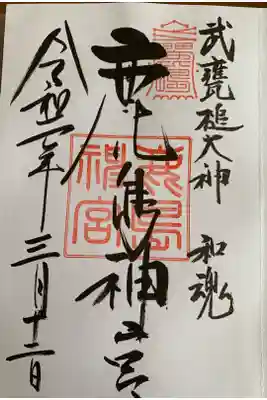 武甕槌大神 和魂
鹿島神宮
鹿島神宮
令和 年三月十二日